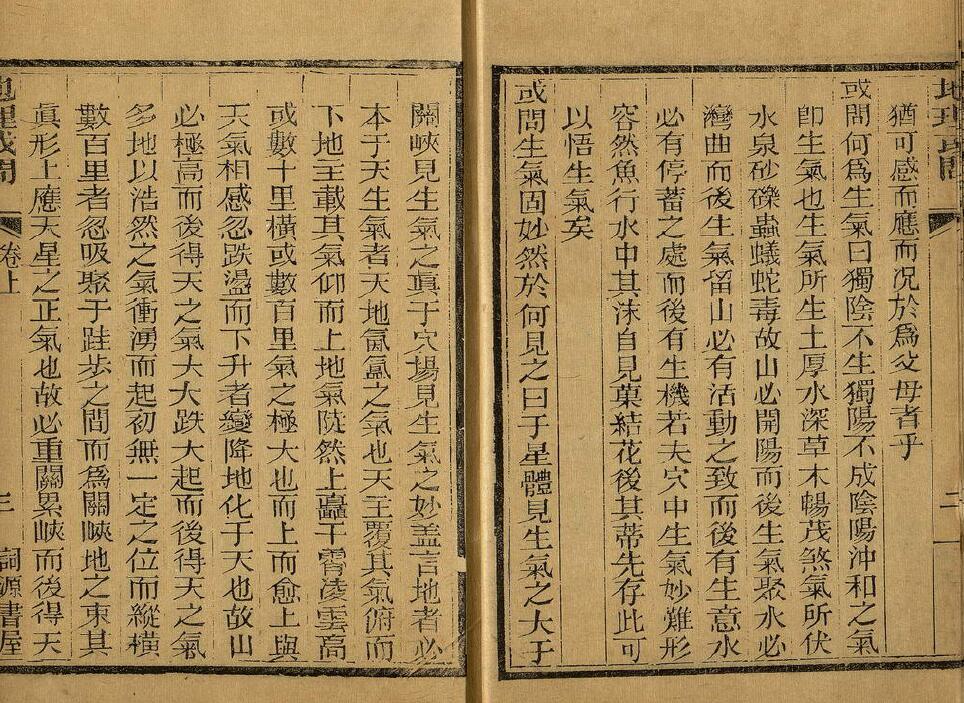 地理或問
二
猶可感而應而况於爲父母者乎
或問何爲生氣曰獨陰不生獨陽不成陰陽沖和之氣
卽生氣也生氣所生土厚水深草木暢茂煞氣所伏
水泉砂礫蟲蟻蛇毒故山必開陽而後生氣聚水必
灣曲而後生氣留山必有活動之致而後有生意水
必有停蓄之處而後有生機若夫穴中生氣妙難形
容然魚行水中其沫自見菓結花後其蒂先存此可
以悟生氣矣
或問生氣固妙然於何見之曰于星體見生氣之大于
關峽見生氣之眞于穴塲見生氣之妙盖言地者必
本于天生氣者天地氤氳之氣也天主覆其氣俯而
下地主載其氣仰而上地氣陡然上矗干霄淩雲高
或數十里橫或數百里氣之極大也而上而愈上與
天氣相感忽跌盪而下升者變降地化于天也故山
必極高而後得天之氣大大跌大起而後得天之氣
多地以浩然之氣衝湧而起初無一定之位而縱橫
數百里者忽吸聚于跬步之間而爲關峽地之束其
眞形上應天星之正氣也故必重關累峽而後得天
地理或問
卷上
三
詞源書屋